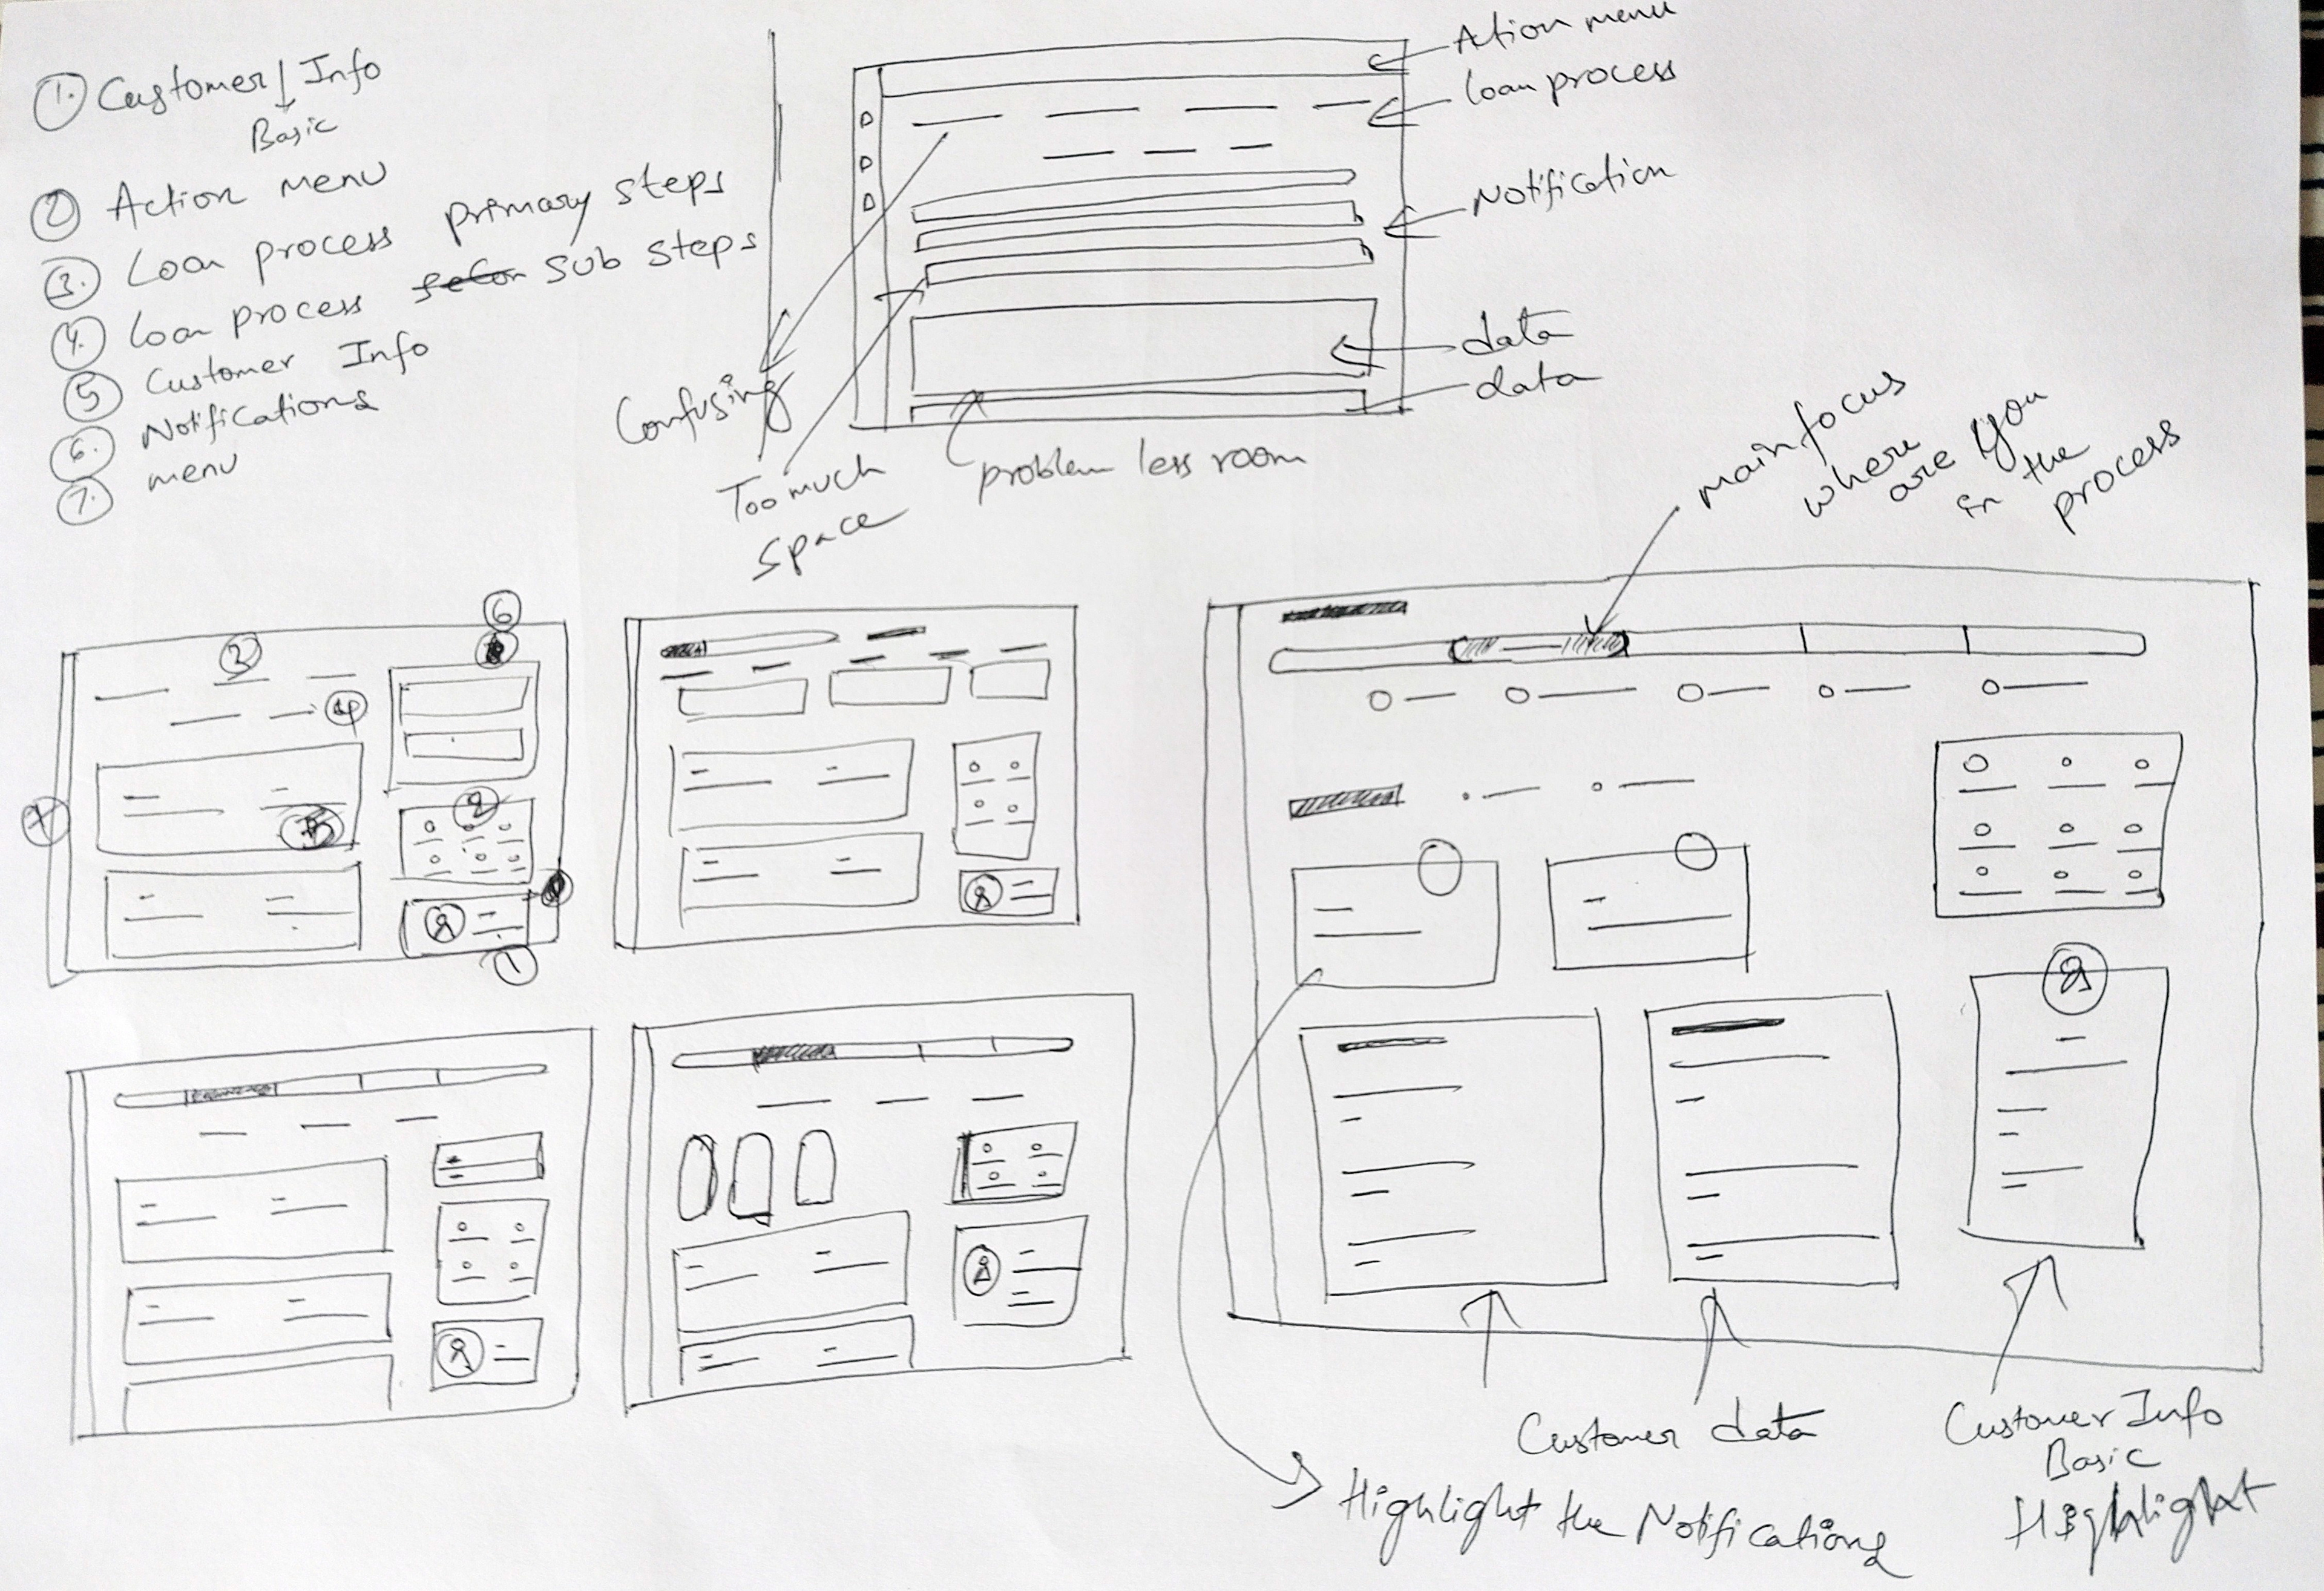 1. Customer Info
Basic
2 Action menu
3. Loan process primary steps
4. Loan process sub steps
5 Customer Info
6. Notifications
7. menu
Action menu
Loan process
Notification
data
data
Confusing
Too much
space
problem less room
main focus
where are you
in the
process
6
3
4
2
5
7
1
Customer data
Customer Info
Basic
Highlight
Highlight the Notifications